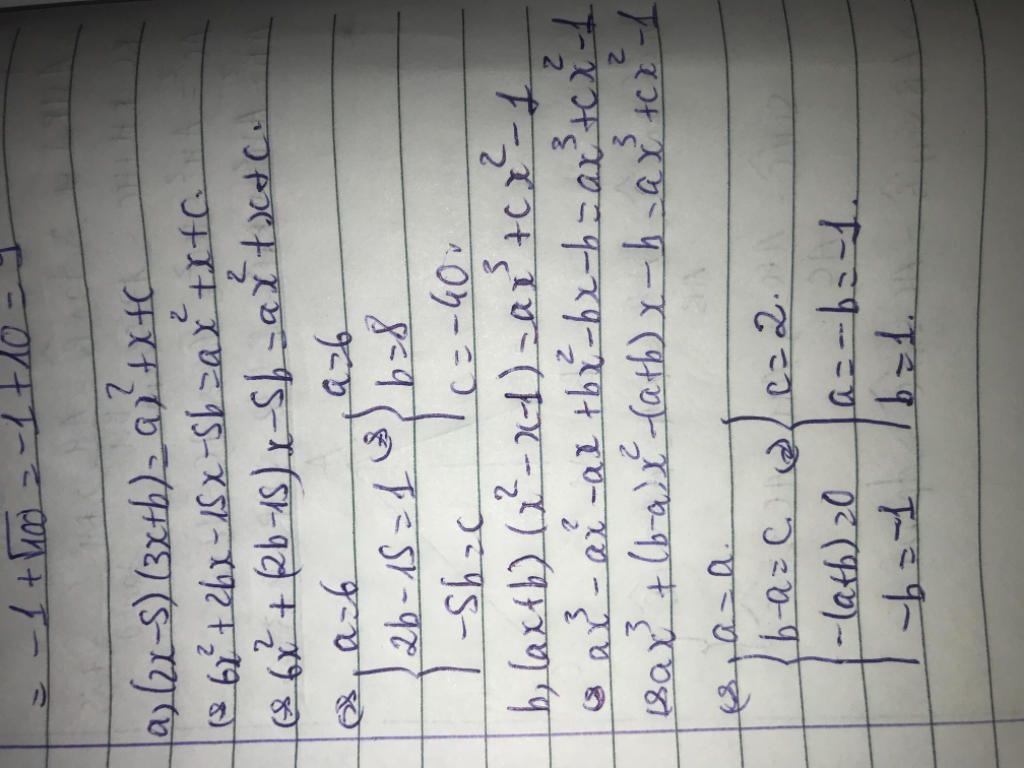 = -1 + √100 = -1 + 10 = 9
a, (2x-5)(3x+b) = ax² + x + c
⇔ 6x² + 2bx - 15x - 5b = ax² + x + c.
⇔ 6x² + (2b-15)x - 5b = ax² + x + c.
⇔ { a=6 { a=6
2b-15=1 ⇔ b=8
-5b=c c=-40.
b, (ax+b)(x²-x-1) = ax³ + cx² - 1
⇔ ax³ - ax² - ax + bx² - bx - b = ax³ + cx² - 1
⇔ ax³ + (b-a)x² - (a+b)x - b = ax³ + cx² - 1
⇔ { a=a.
b-a=c. ⇔ { c=2.
-(a+b)=0 a=-b=-1.
-b=-1 b=1.